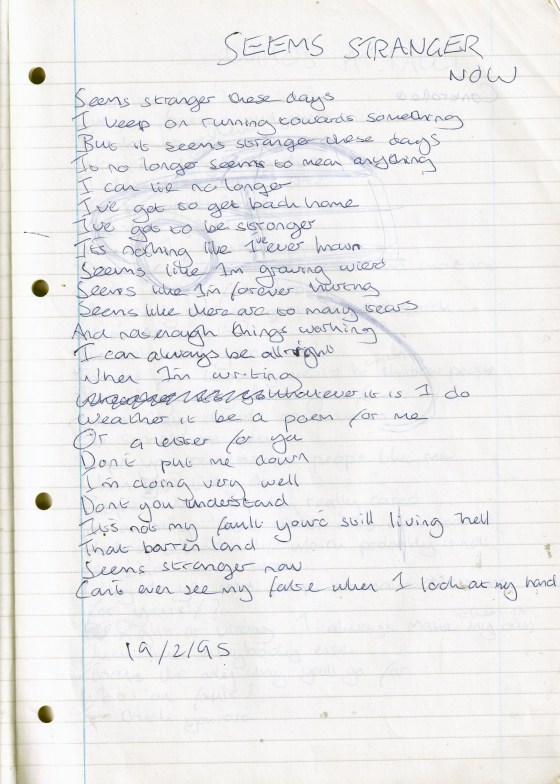 SEEMS STRANGER
NOW
Seems stranger these days
I keep on running towards something
But it seems stranger these days
It no longer seems to mean anything
I can lie no longer
I've got to get back home
I've got to be stronger
It's nothing like I've ever known
Seems like I'm growing wierd
Seems like I'm forever hurting
Seems like there are to many tears
And not enough things working
I can always be allright
When I'm writing
whatever it is I do
Weather it be a poem for me
Or a letter for ya
Don't put me down
I'm doing very well
Dont you understand
It's not my fault you're still living hell
That barren land
Seems stranger now
Can't ever see my fate when I look at my hand
19/2/95